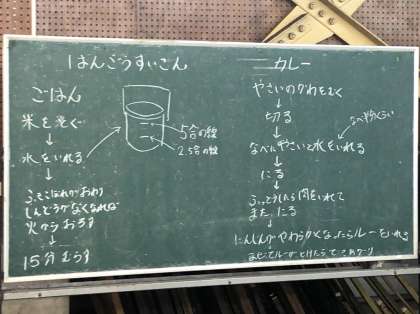 はんごうすいさん
ごはん
米を洗ぐ
↓
水をいれる
↓
ふきこぼれがおわり
しんどうがなくなれば
火からおろす
↓
15分むらす
5合の線
2.5合の線
カレー
やさいのかわをむく
↓
切る
↓
なべにやさいと水をいれる
なべ半分くらい
↓
にる
↓
ふっとうしたら肉をいれて
また にる
↓
にんじんがやわらかくなったらルーをいれる